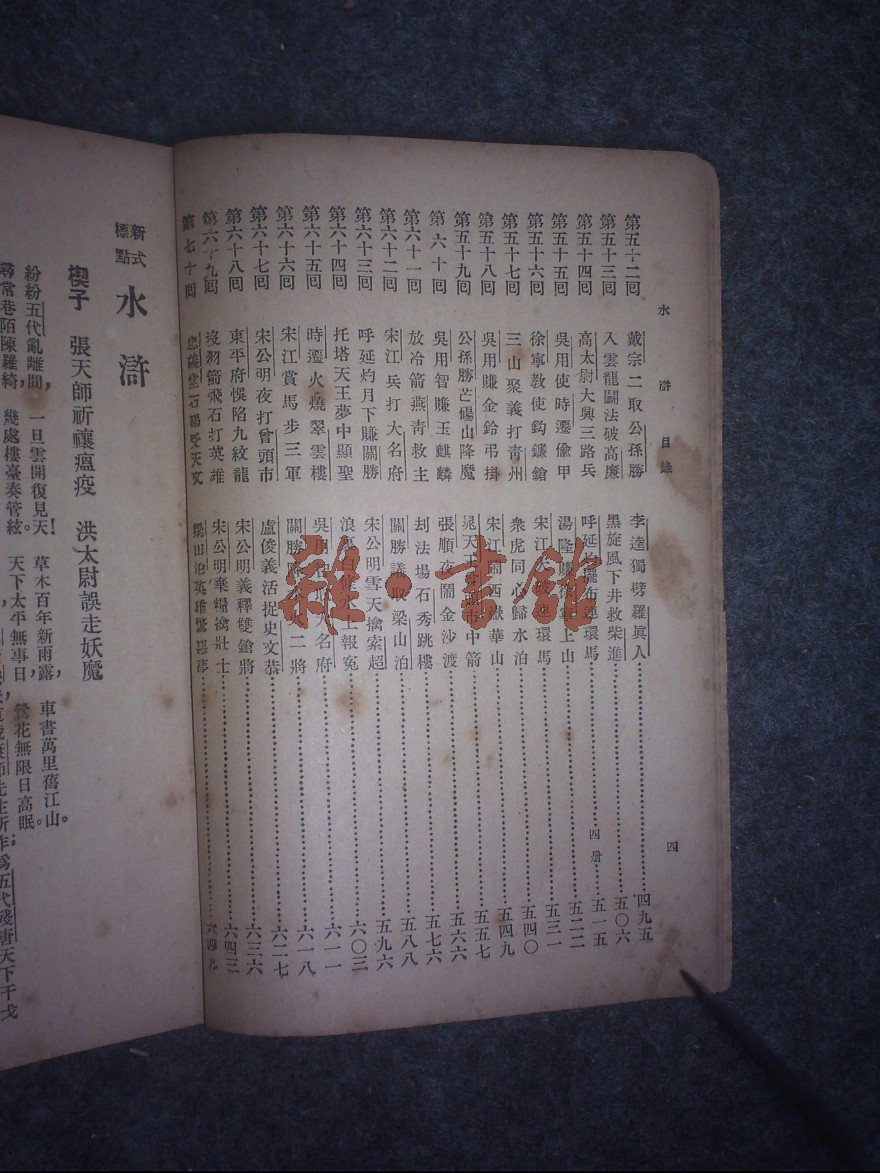 水滸目錄 四
第五十二回 戴宗二取公孫勝 李逵獨劈羅眞人 四九五
第五十三回 入雲龍鬬法破高廉 黑旋風下井救柴進 五〇六
第五十四回 高太尉大興三路兵 呼延灼擺布連環馬 四册 五一五
第五十五回 吳用使時遷偸甲 湯隆賺徐寧上山 五二二
第五十六回 徐寧敎使鈎鐮鎗 宋江大破連環馬 五三一
第五十七回 三山聚義打靑州 衆虎同心歸水泊 五四〇
第五十八回 吳用賺金鈴弔掛 宋江鬧西嶽華山 五四九
第五十九回 公孫勝芒碭山降魔 晁天王 市中箭 五五七
第六十回 吳用智賺玉麒麟 張順夜鬧金沙渡 五六六
第六十一回 放冷箭燕靑救主 刦法場石秀跳樓 五七六
第六十二回 宋江兵打大名府 關勝議取梁山泊 五八八
第六十三回 呼延灼月下賺關勝 宋公明雪天擒索超 五九六
第六十四回 托塔天王夢中顯聖 浪裏白 水上報寃 六〇三
第六十五回 時遷火燒翠雲樓 吳用 大名府 六一一
第六十六回 宋江賞馬步三軍 關勝降水火二將 六一八
第六十七回 宋公明夜打曾頭市 盧俊義活捉史文恭 六二七
第六十八回 東平府悞陷九紋龍 宋公明義釋雙鎗將 六三六
第六十九回 沒羽箭飛石打英雄 宋公明棄糧擒壯士 六四三
第七十回 忠義堂石碣受天文 梁山泊英雄驚惡夢 六四九
雜·書館
新式標點 水滸
楔子 張天師祈禳瘟疫 洪太尉誤走妖魔
紛紛五代亂離間，一旦雲開復見天！草木百年新雨露，車書萬里舊江山。
尋常巷陌陳羅綺，幾處樓臺奏管絃。天下太平無事日，鶯花無限日高眠。
先生所作；爲五代殘唐天下干戈